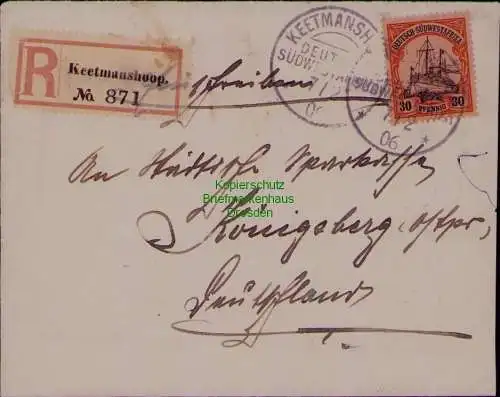 R
Keetmanshoop.
No. 871
KEETMANSH
DEUT
SÜDW
7/2
06
DEUTSCH-SÜDWESTAFRIKA
30 PFENNIG 30
/2
06
schreiben
An Städtische Sparkasse
Kopierschutz
Briefmarkenhaus
Dresden
Königsberg, Ostpr.
Deutschland